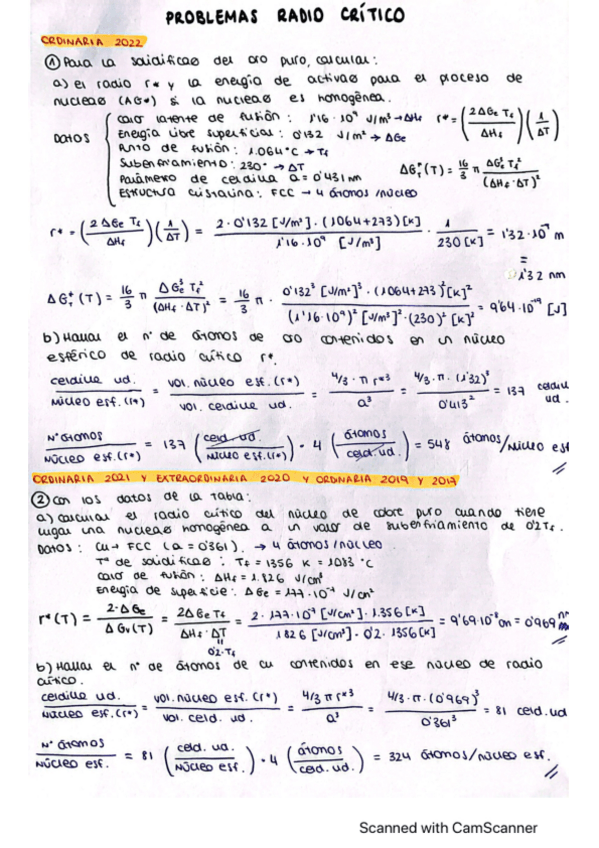 PROBLEMAS RADIO CRÍTICO
ORDINARIA 2022
① Para la solidificao del oro puro, calcular:
a) el radio r* y la energía de activao para el proceso de
nucleao (ΔG*) si la nucleao es homogénea.
DATOS
Calor latente de fusión: 1'16·10⁹ J/m³ → ΔHf
Energía libre superficial: 0'132 J/m² → ΔGe
Punto de fusión: 1.064°C → Tf
Subenfriamiento: 230° → ΔT
Parámetro de celdilla a = 0'431 nm
Estructura cristalina: FCC → 4 átomos/núcleo
r* = (2ΔGe Tf / ΔHf)(1/ΔT)
ΔGr*(T) = 16/3 π ΔGe³ Tf² / (ΔHf·ΔT)²
r* = (2ΔGe Tf / ΔHf)(1/ΔT) = 2·0'132 [J/m²]·(1064+273)[K] / 1'16·10⁹ [J/m³] · 1/230 [K] = 1'32·10⁻⁹ m
= 1'32 nm
ΔGr*(T) = 16/3 π ΔGe³ Tf² / (ΔHf·ΔT)² = 16/3 π · 0'132³ [J/m²]³·(1064+273)²[K]² / (1'16·10⁹)² [J/m³]²·(230)² [K]² = 9'64·10⁻¹⁹ [J]
b) Hallar el nº de átomos de oro contenidos en un núcleo
esférico de radio crítico r*.
celdilla ud. / núcleo esf.(r*) = vol. núcleo esf.(r*) / vol. celdilla ud. = 4/3·π r*³ / a³ = 4/3·π·(1'32)³ / 0'413² = 137 celdill ud.
Nº átomos / núcleo esf.(r*) = 137 (celd. ud. / núcleo esf.(r*)) · 4 (átomos / celd. ud.) = 548 átomos/núcleo esf
ORDINARIA 2021 Y EXTRAORDINARIA 2020 Y ORDINARIA 2019 Y 2017
② Con los datos de la tabla:
a) calcular el radio crítico del núcleo de cobre puro cuando tiene
lugar una nucleao homogénea a un valor de subenfriamiento de 0'2Tf.
Datos: Cu → FCC (a = 0'361). → 4 átomos/núcleo
Tª de solidificao: Tf = 1356 K = 1083 °C
calor de fusión: ΔHf = 1.826 J/cm³
Energía de superficie: ΔGe = 1'77·10⁻⁷ J/cm²
r*(T) = 2·ΔGe / ΔGv(T) = 2ΔGe Tf / ΔHf·ΔT = 2·177·10⁻⁷ [J/cm²]·1.356 [K] / 1826 [J/cm³]·0'2·1356 [K] = 9'69·10⁻⁸ cm = 0'969 nm
0'2·Tf
b) Hallar el nº de átomos de Cu contenidos en ese núcleo de radio
crítico.
celdilla ud. / núcleo esf.(r*) = vol. núcleo esf.(r*) / vol. celd. ud. = 4/3 π r*³ / a³ = 4/3·π·(0'969)³ / 0'361³ = 81 celd.ud
Nº átomos / núcleo esf. = 81 (celd. ud. / núcleo esf.) · 4 (átomos / celd. ud.) = 324 átomos/núcleo esf.
Scanned with CamScanner